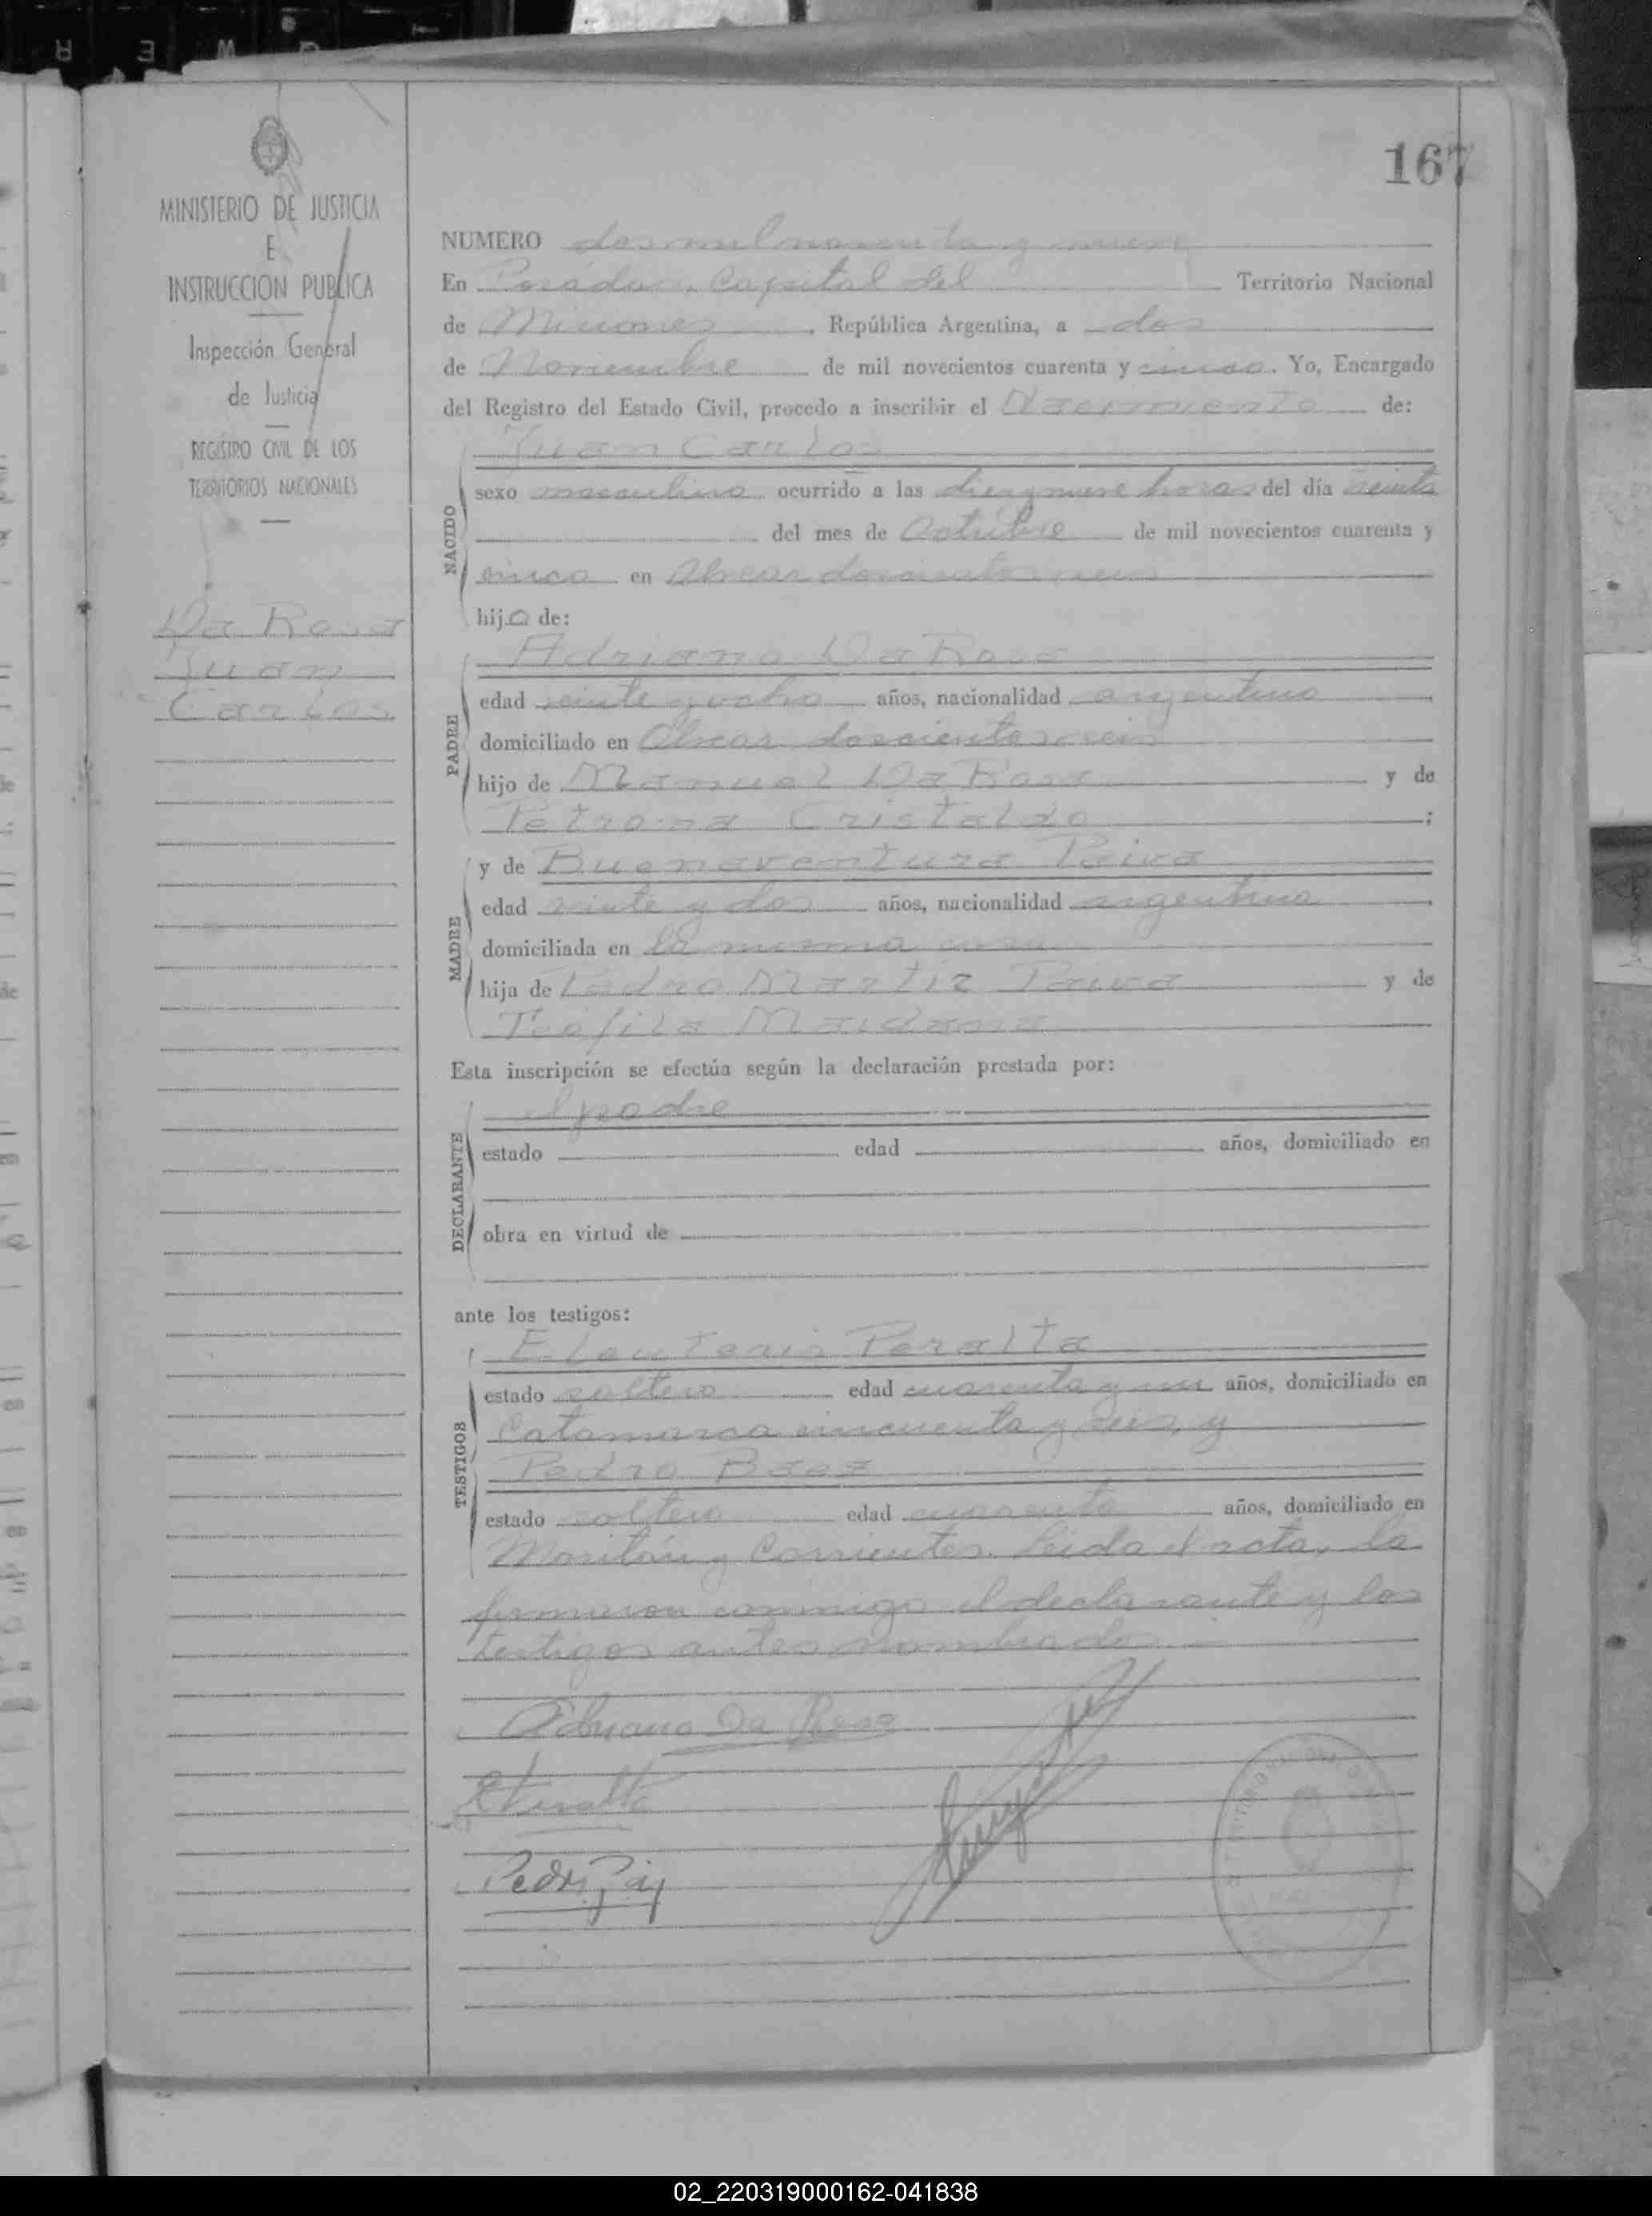 167
MINISTERIO DE JUSTICIA
E
INSTRUCCION PUBLICA
Inspección General
de Justicia
REGISTRO CIVIL DE LOS
TERRITORIOS NACIONALES
Da Rosa
Juan
Carlos
NUMERO dos mil noventa y nueve
En Posadas, Capital del Territorio Nacional
de Misiones, República Argentina, a dos
de Noviembre de mil novecientos cuarenta y cinco. Yo, Encargado
del Registro del Estado Civil, procedo a inscribir el Nacimiento de:
Juan Carlos
NACIDO
sexo masculino ocurrido a las diez y nueve horas del día veinte
del mes de Octubre de mil novecientos cuarenta y
cinco en Alvear doscientos seis
hijo de:
Adriano Da Rosa
PADRE
edad veinte y ocho años, nacionalidad argentino
domiciliado en Alvear doscientos seis
hijo de Manuel Da Rosa y de
Petrona Cristaldo;
y de Buenaventura Paiva
MADRE
edad veinte y dos años, nacionalidad argentina
domiciliada en la misma casa
hija de Pedro Martir Paiva y de
Teófila Maidana
Esta inscripción se efectúa según la declaración prestada por:
el padre
DECLARANTE
estado edad años, domiciliado en
obra en virtud de
ante los testigos:
Eleuterio Peralta
TESTIGOS
estado soltero edad cuarenta y un años, domiciliado en
Catamarca cincuenta y seis, y
Pedro Baez
estado soltero edad cuarenta años, domiciliado en
y Corrientes. Leida el acta, la
firmaron conmigo el declarante y los
testigos antes nombrados.
Adriano Da Rosa
EPeralta
Pedro
02_220319000162-041838